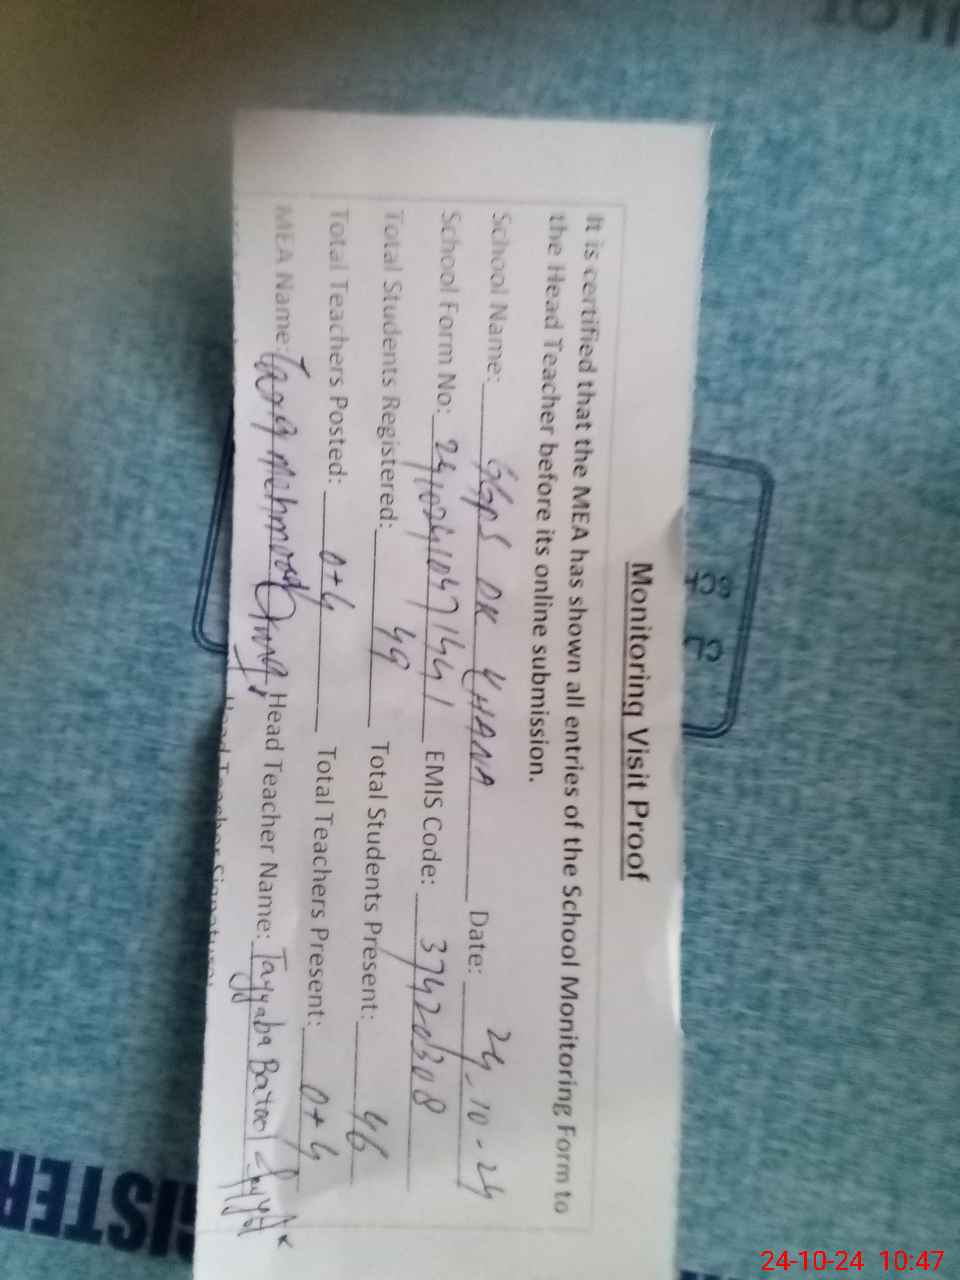 Monitoring Visit Proof
It is certified that the MEA has shown all entries of the School Monitoring Form to
the Head Teacher before its online submission.
School Name: GGPS DK KHANA Date: 24-10-24
School Form No: 24102410471441 EMIS Code: 37420308
Total Students Registered: 49 Total Students Present: 46
Total Teachers Posted: 0+4 Total Teachers Present: 0+4
MEA Name: Tariq Mehmood Head Teacher Name: Tayyaba Batool
Head Teacher Signature:
GISTER
24-10-24 10:47